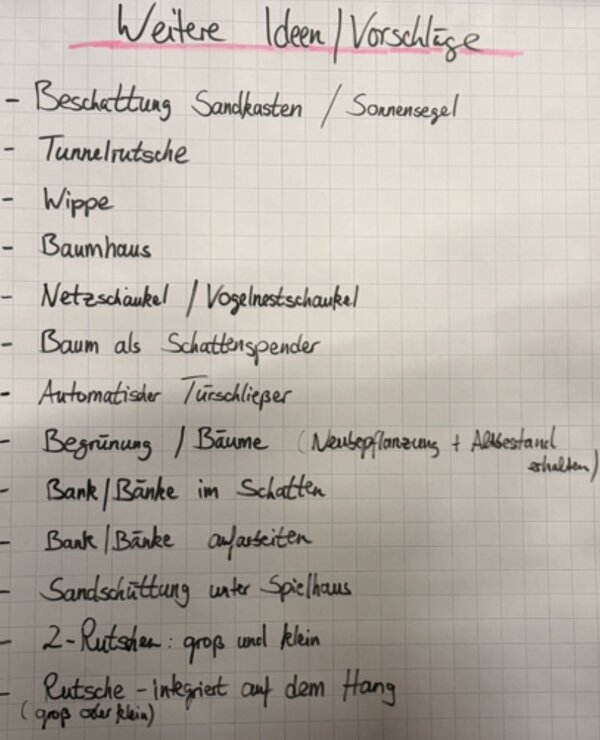 Weitere Ideen/Vorschläge
- Beschattung Sandkasten / Sonnensegel
- Tunnelrutsche
- Wippe
- Baumhaus
- Netzschaukel / Vogelnestschaukel
- Baum als Schattenspender
- Automatischer Türschließer
- Begrünung / Bäume (Neubepflanzung + Altbestand
erhalten)
- Bank/Bänke im Schatten
- Bank/Bänke aufarbeiten
- Sandschüttung unter Spielhaus
- 2-Rutschen: groß und klein
- Rutsche - integriert auf dem Hang
(groß oder klein)